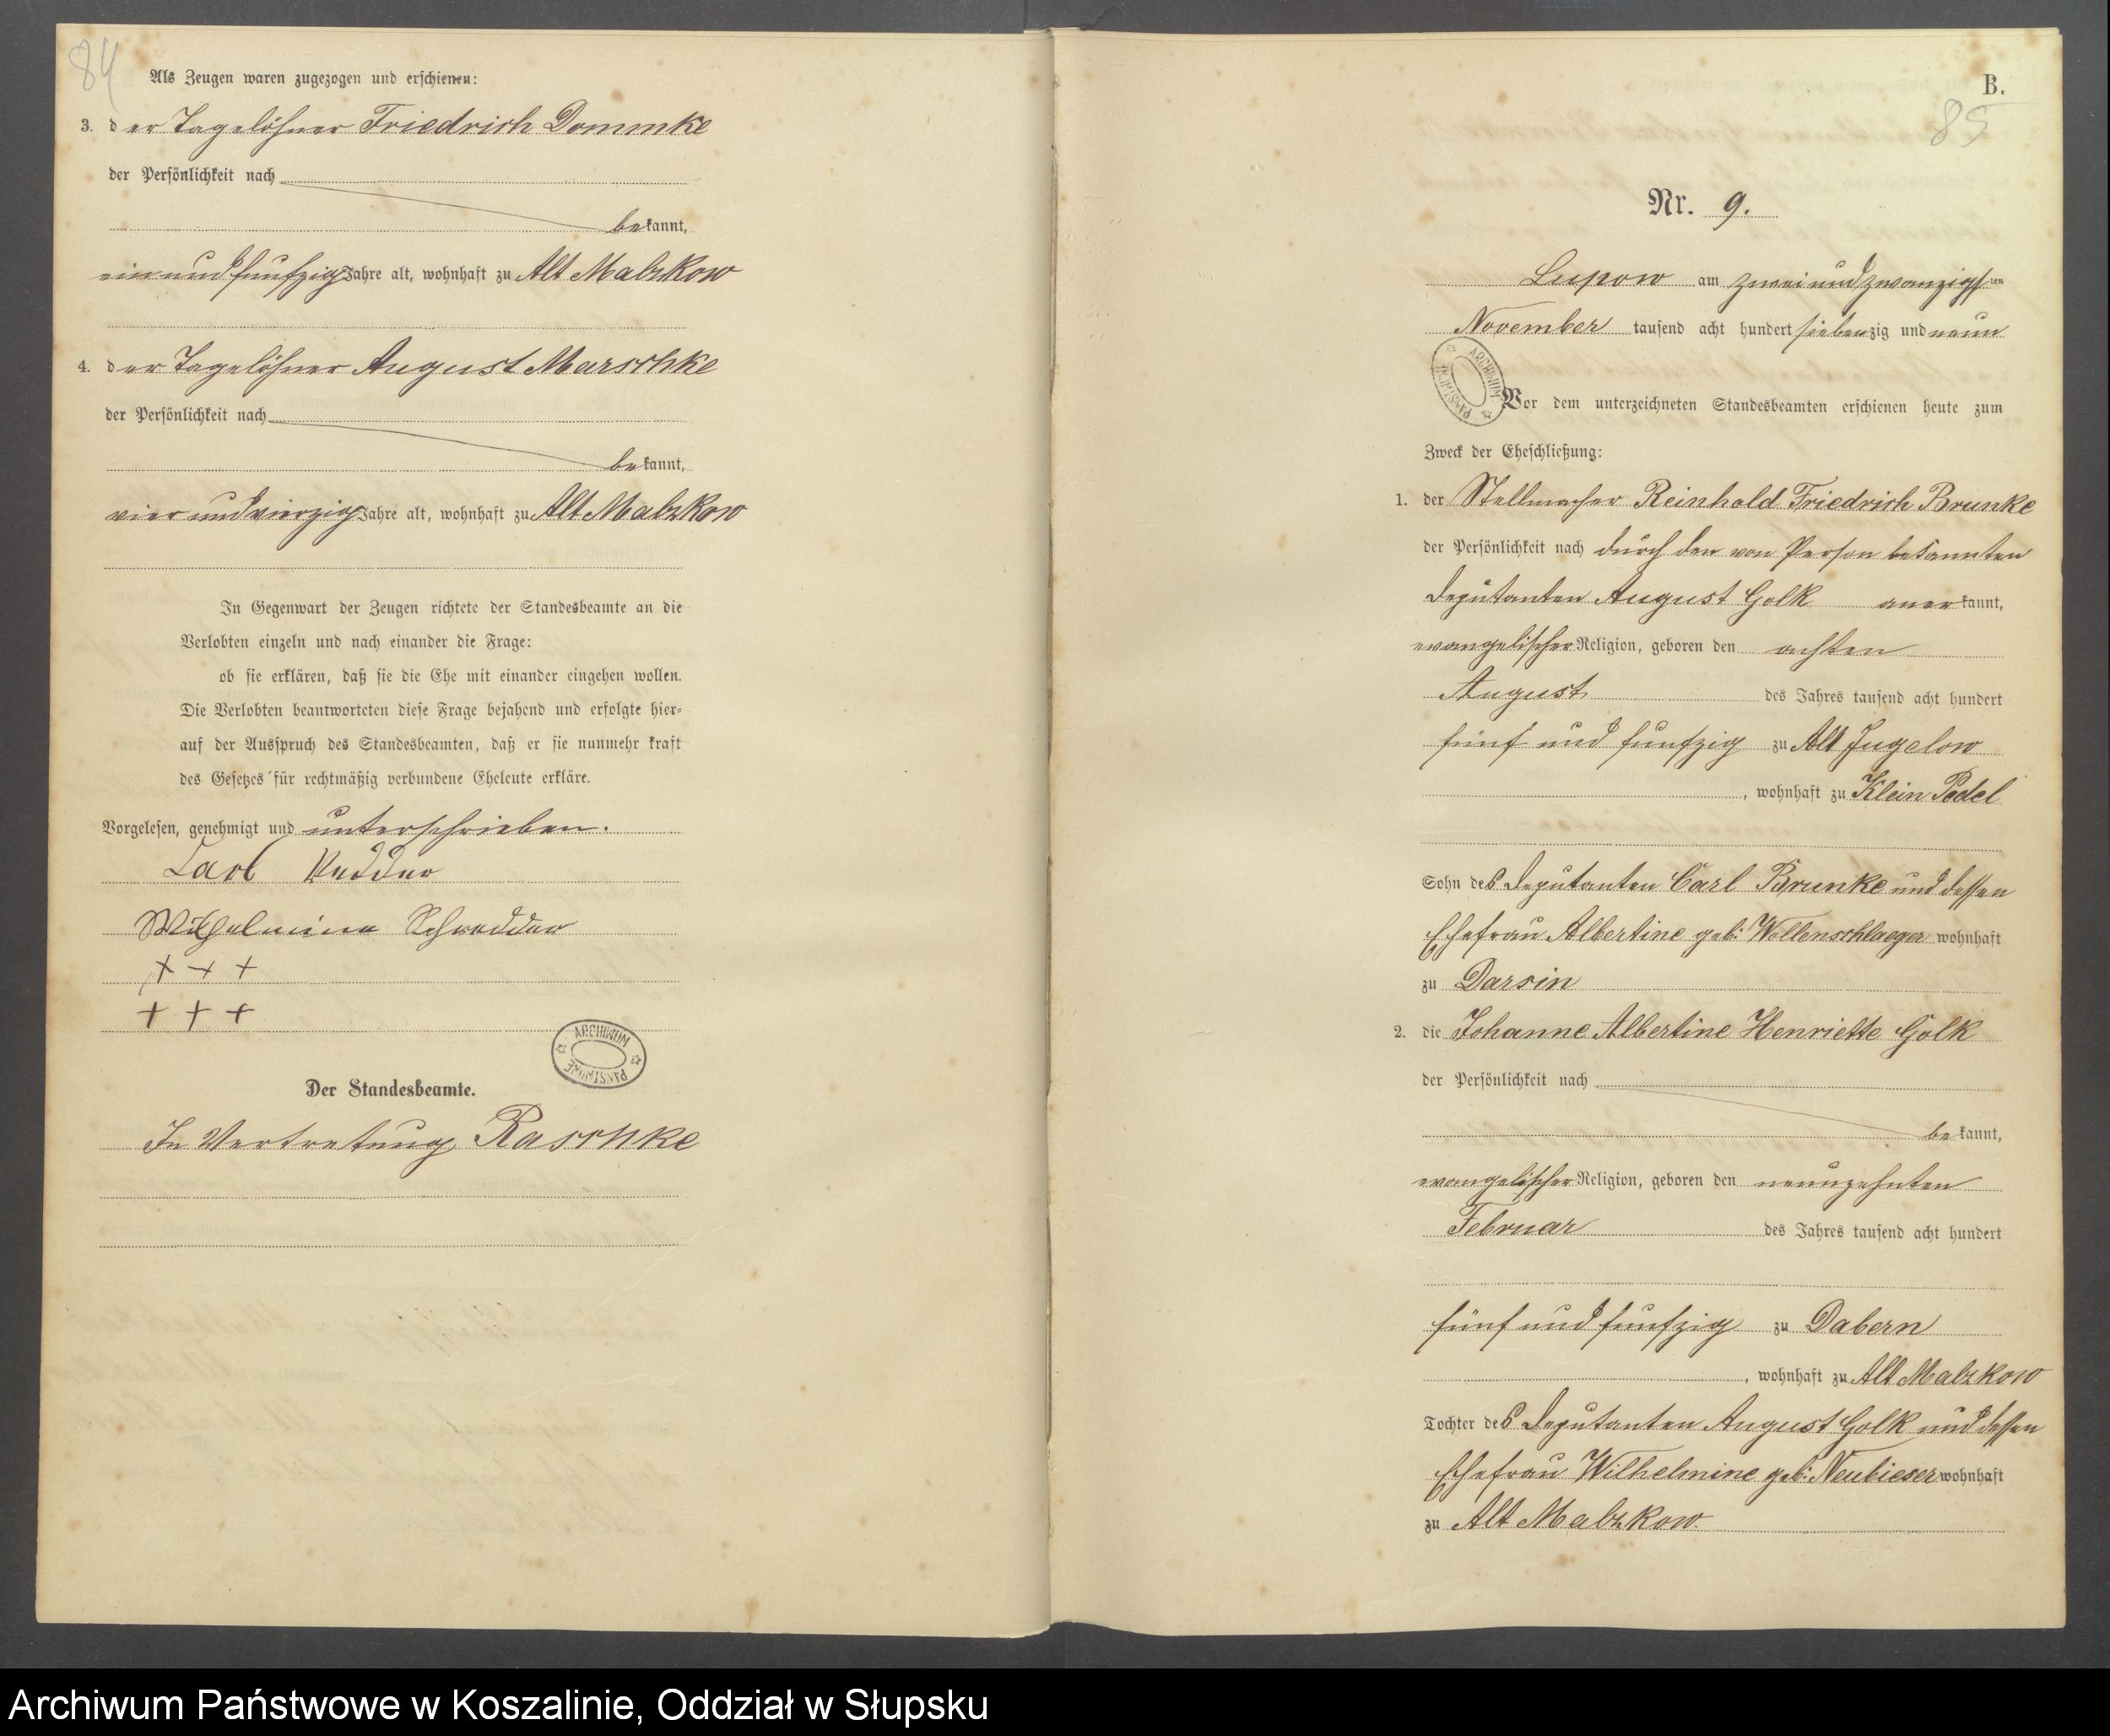 84
Als Zeugen waren zugezogen und erschienen:
3. der Tagelöhner Friedrich Dommke
der Persönlichkeit nach
bekannt,
ein und funfzig Jahre alt, wohnhaft zu Alt Malzkow
4. der Tagelöhner August Marschke
der Persönlichkeit nach
bekannt,
vier und vierzig Jahre alt, wohnhaft zu Alt Malzkow
In Gegenwart der Zeugen richtete der Standesbeamte an die
Verlobten einzeln und nach einander die Frage:
ob sie erklären, daß sie die Ehe mit einander eingehen wollen.
Die Verlobten beantworteten diese Frage bejahend und erfolgte hier-
auf der Ausspruch des Standesbeamten, daß er sie nunmehr kraft
des Gesetzes für rechtmäßig verbundene Eheleute erkläre.
Vorgelesen, genehmigt und unterschrieben.
Carl
Wilhelmine Schwedder
+ + +
+ + +
ARCHIWUM PAŃSTWOWE
Der Standesbeamte.
In Vertretung Raschke
B.
85
Nr. 9.
Lupow am zwei und zwanzigsten
November tausend acht hundert siebenzig und neun
ARCHIWUM PAŃSTWOWE
Vor dem unterzeichneten Standesbeamten erschienen heute zum
Zweck der Eheschließung:
1. der Stellmacher Reinhold Friedrich Brunke
der Persönlichkeit nach durch den von Person bekannten
Deputanten August Golk anerkannt,
evangelischer Religion, geboren den achten
August des Jahres tausend acht hundert
fünf und funfzig zu Alt Jugelow
, wohnhaft zu Klein Podel
Sohn des Deputanten Carl Brunke und dessen
Ehefrau Albertine geb: Wollenschlaeger wohnhaft
zu Darsin
2. die Johanne Albertine Henriette Golk
der Persönlichkeit nach
bekannt,
evangelischer Religion, geboren den neunzehnten
Februar des Jahres tausend acht hundert
fünf und funfzig zu Dabern
, wohnhaft zu Alt Malzkow
Tochter des Deputanten August Golk und dessen
Ehefrau Wilhelmine geb: Neubieser wohnhaft
zu Alt Malzkow.
Archiwum Państwowe w Koszalinie, Oddział w Słupsku